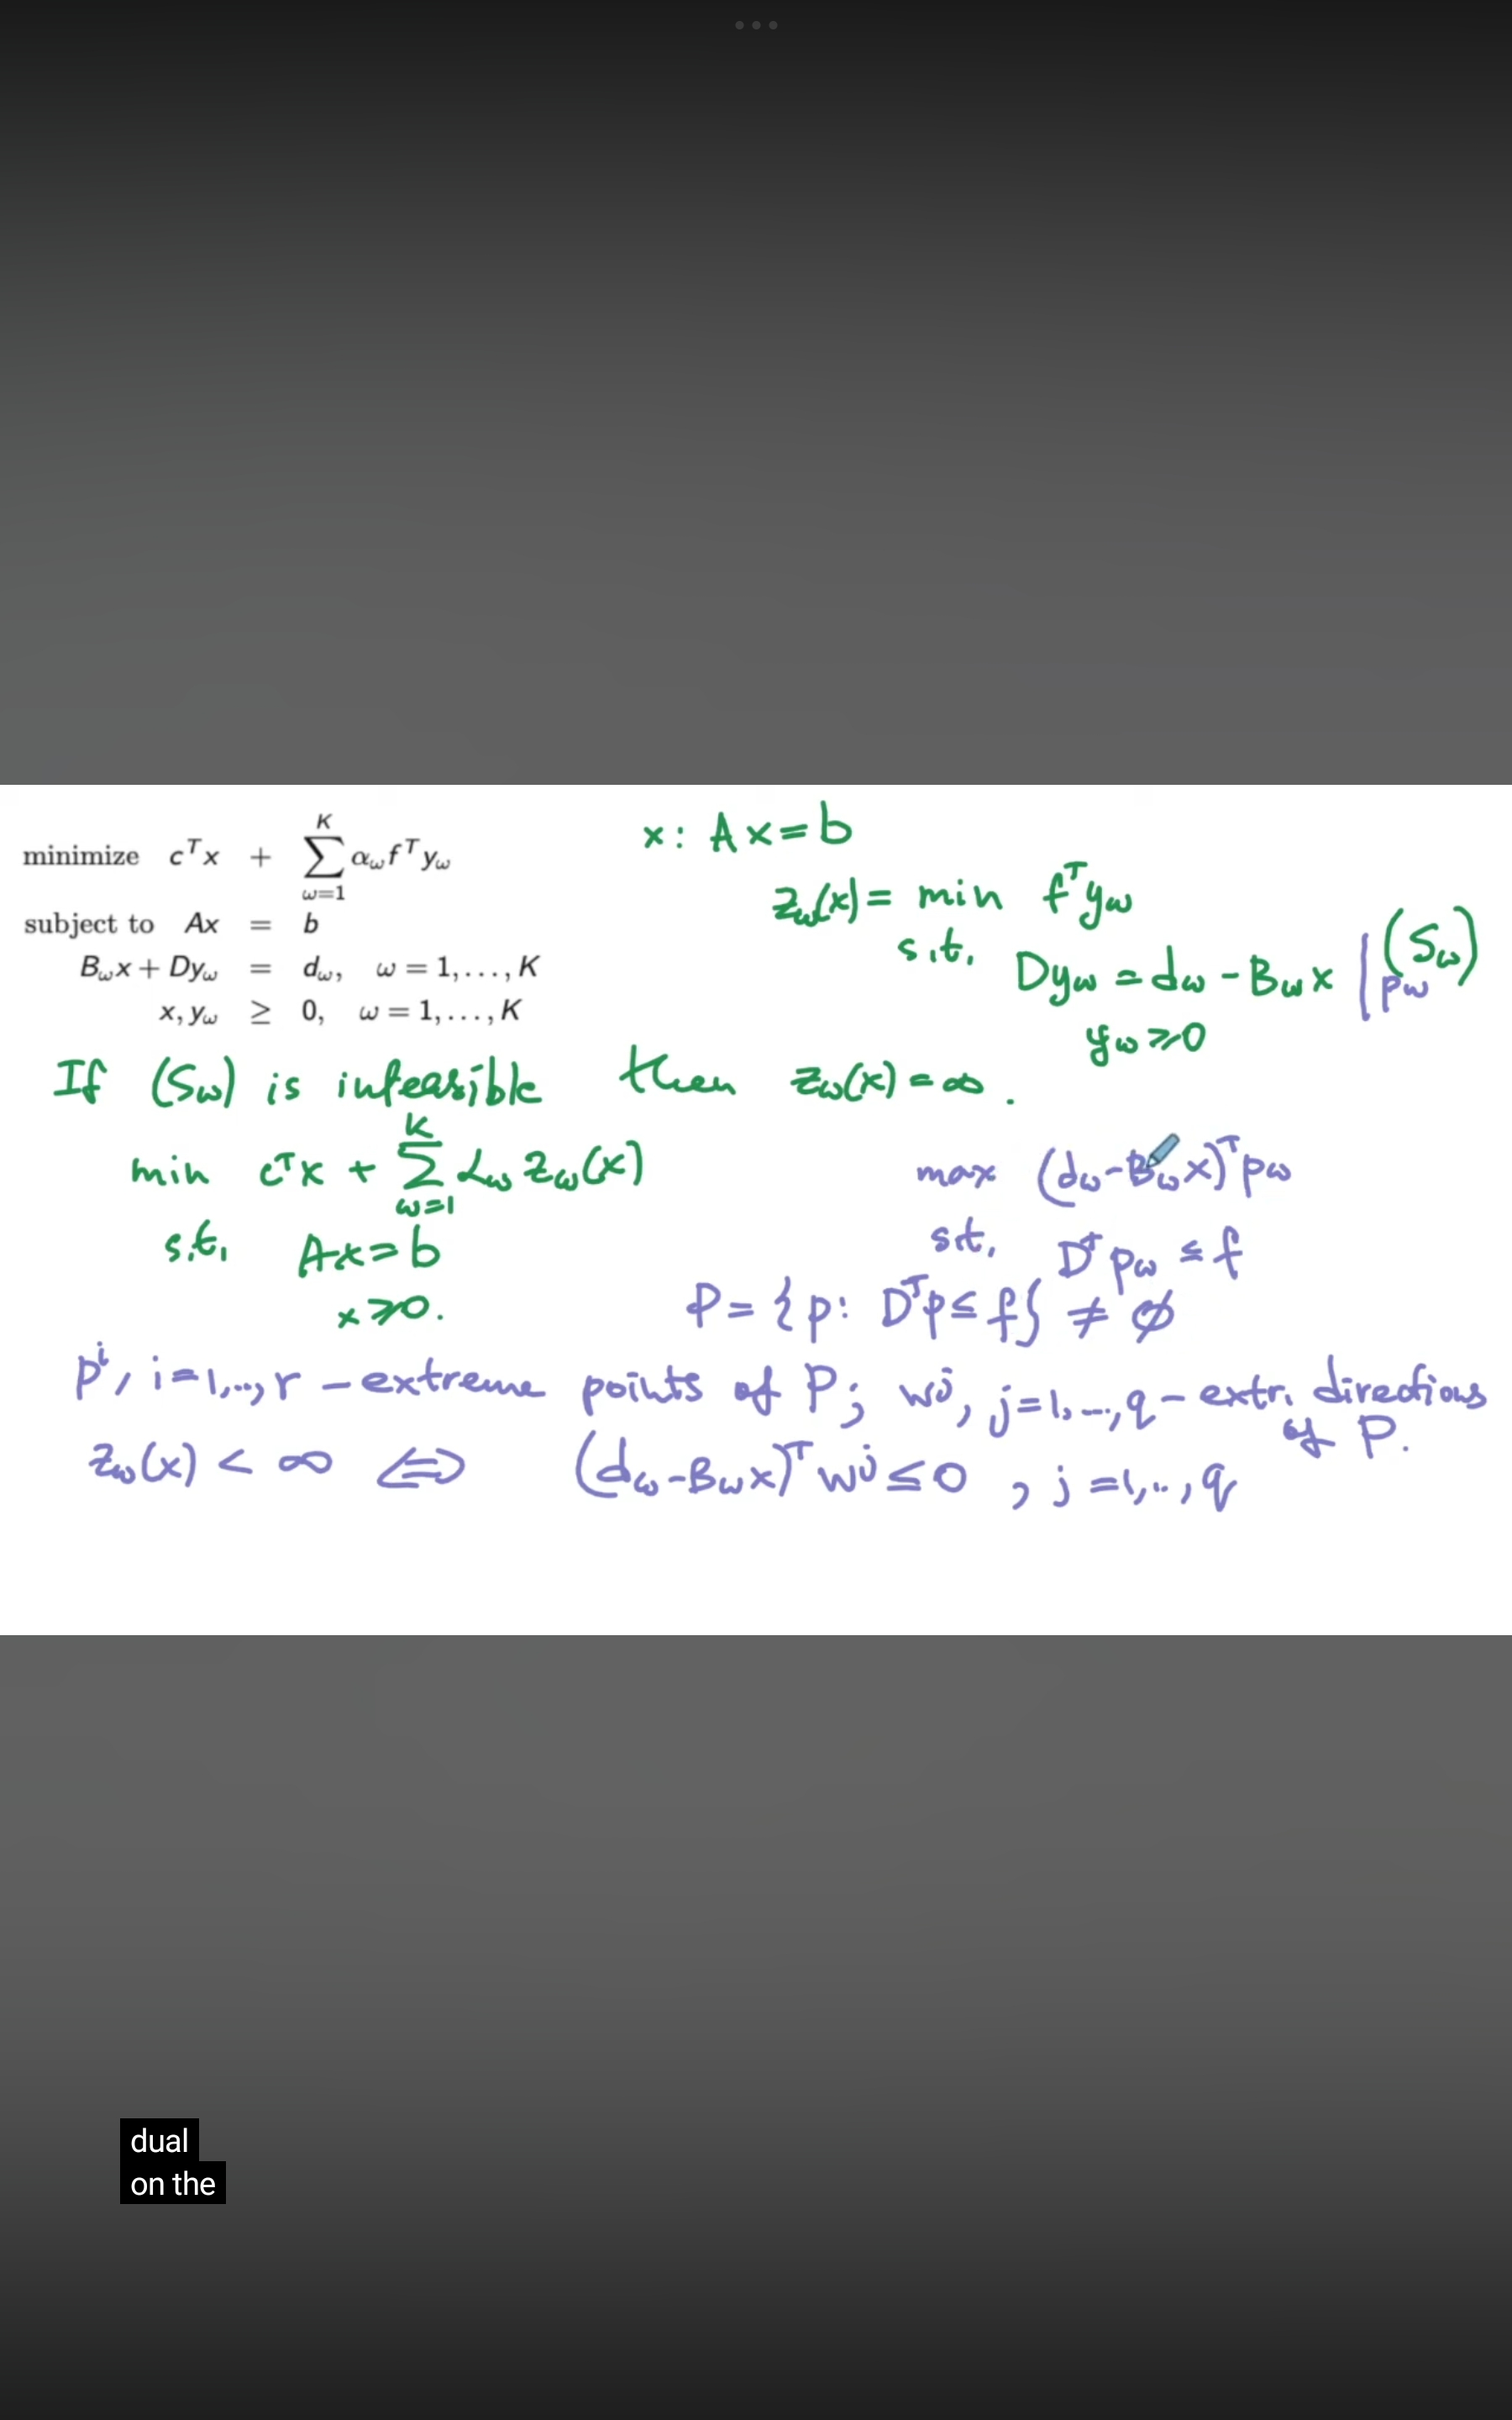 minimize cᵀx + ∑_{ω=1}^{K} α_ω fᵀy_ω
subject to Ax = b
B_ωx + Dy_ω = d_ω, ω = 1, . . . , K
x, y_ω ≥ 0, ω = 1, . . . , K
x: Ax = b
z_ω(x) = min fᵀy_ω
s.t. Dy_ω = d_ω - B_ωx | p_ω (S_ω)
y_ω ≥ 0
If (S_ω) is infeasible then z_ω(x) = ∞.
min cᵀx + ∑_{ω=1}^{K} α_ω z_ω(x)
s.t. Ax = b
x ≥ 0.
max (d_ω - B_ωx)ᵀp_ω
s.t. Dᵀp_ω ≤ f
P = {p: Dᵀp ≤ f} ≠ ∅
pⁱ, i = 1, ..., r - extreme points of P; wʲ, j = 1, ..., q - extr. directions
of P.
z_ω(x) < ∞ ⇔ (d_ω - B_ωx)ᵀwʲ ≤ 0, j = 1, .., q
dual
on the